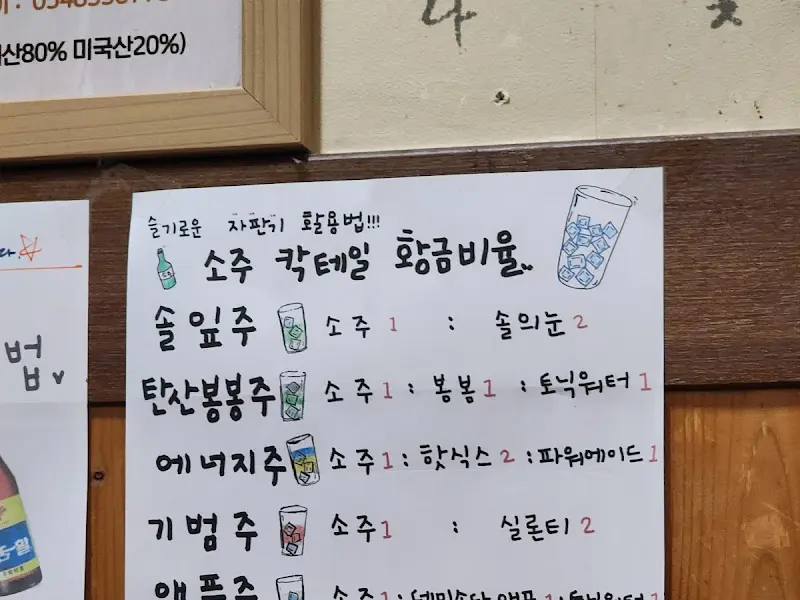 산80% 미국산20%)
슬기로운 자판기 활용법!!!
소주 칵테일 황금비율..
솔잎주 소주 1 : 솔의눈 2
탄산봉봉주 소주 1 : 봉봉 1 : 토닉워터 1
에너지주 소주 1 : 핫식스 2 : 파워에이드 1
기범주 소주 1 : 실론티 2
애플주 소주 1 : 데미소다 애플 1 : 토닉워터 1
법